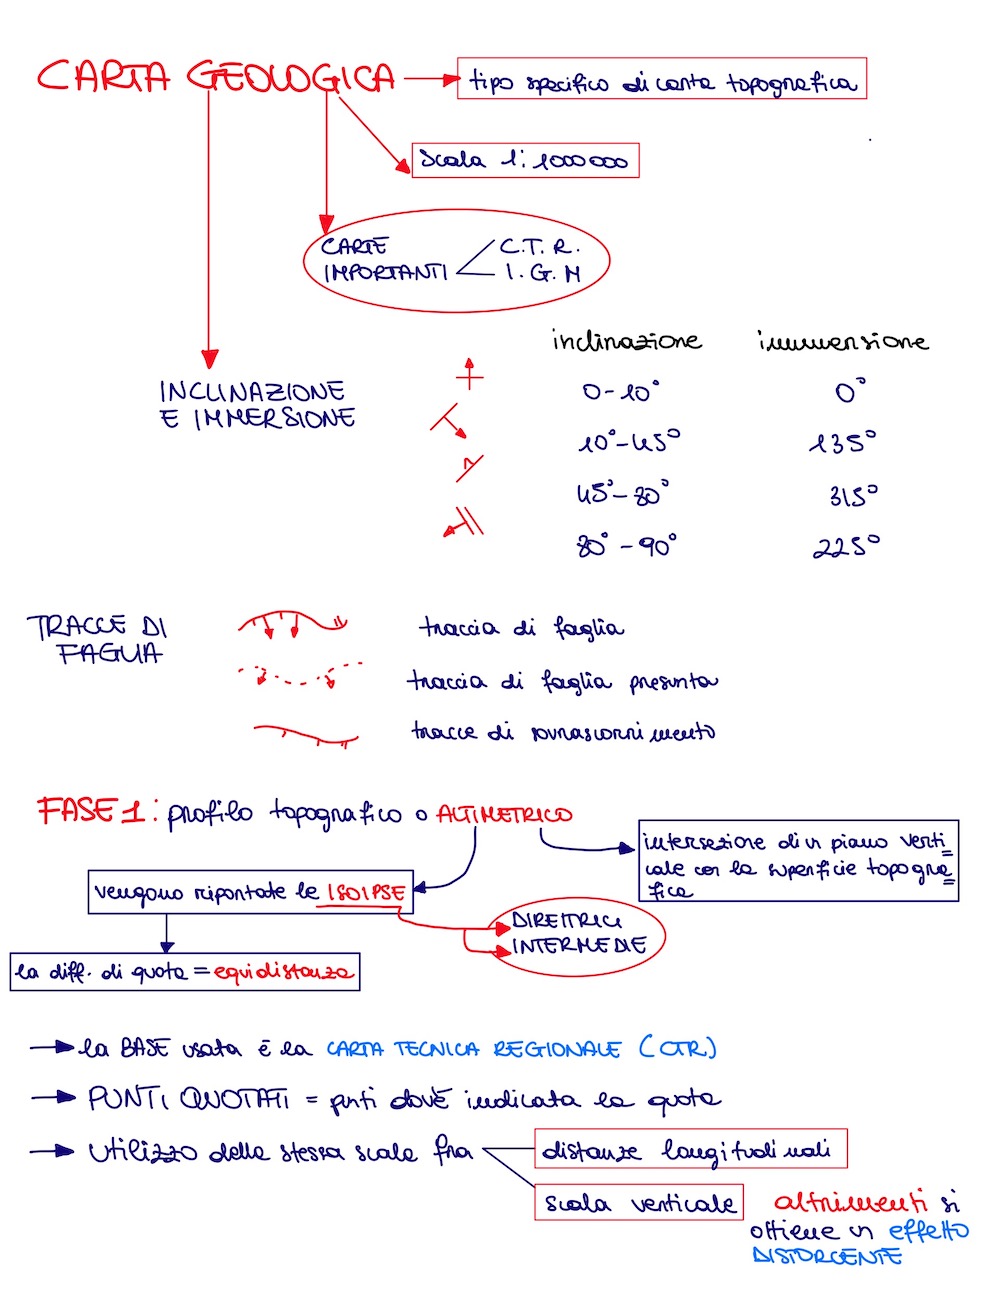 CARTA GEOLOGICA
tipo specifico di carta topografica
Scala 1:1000000
CARTE
IMPORTANTI
C.T.R.
I.G.M
inclinazione immersione
INCLINAZIONE
E IMMERSIONE
0-10° 0°
10°-45° 135°
45°-80° 315°
80°-90° 225°
TRACCE DI
FAGLIA
traccia di faglia
traccia di faglia presunta
tracce di sovrascorrimento
FASE 1: profilo topografico o ALTIMETRICO
intersezione di un piano verti=
cale con la superficie topogra=
fica
vengono riportate le ISOIPSE
DIRETTRICI
INTERMEDIE
la diff. di quota = equidistanza
la BASE usata è la CARTA TECNICA REGIONALE (CTR)
PUNTI QUOTATI = punti dov'è indicata la quota
Utilizzo della stessa scala fra
distanze longitudinali
scala verticale
altrimenti si
ottiene un effetto
DISTORCENTE